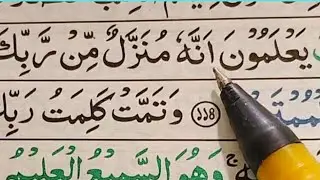 يَعْلَمُوْنَ اَنَّهٗ مُنَزَّلٌ مِّنْ رَّبِّكَ
﴿۱۱۴﴾ وَتَمَّتْ كَلِمَتُ
وَهُوَ السَّمِيْعُ الْعَلِيْمُ